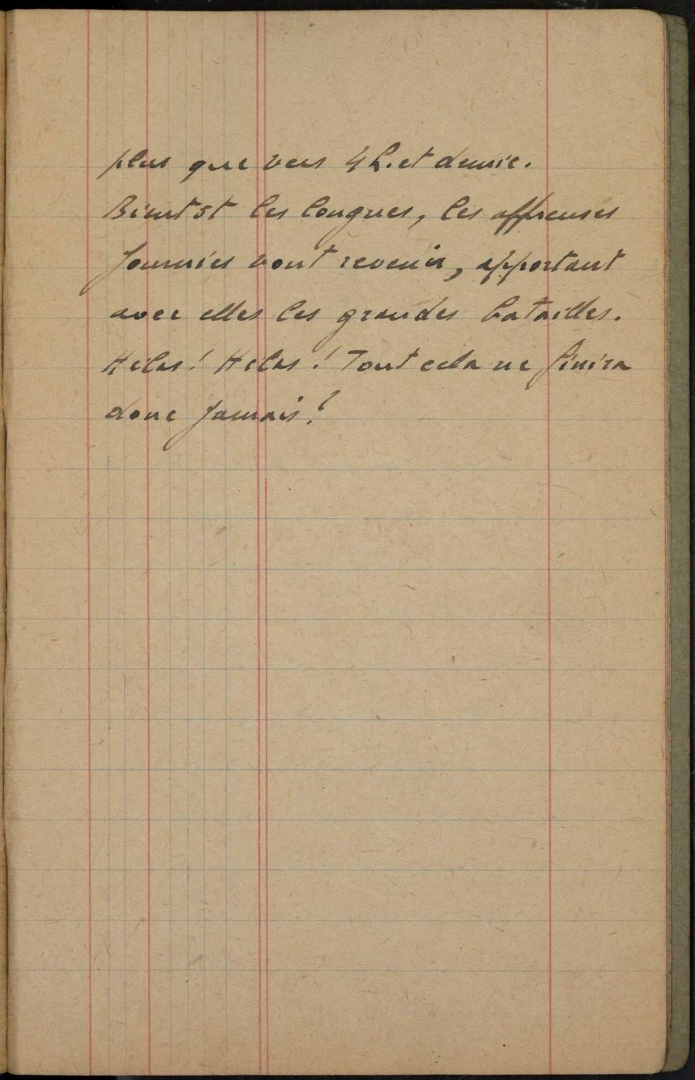 plus que vers 4 h. et demie.
Bientôt les longues, les affreuses
journées vont revenir, apportant
avec elles les grandes batailles.
Hélas! Hélas! Tout cela ne finira
donc jamais?